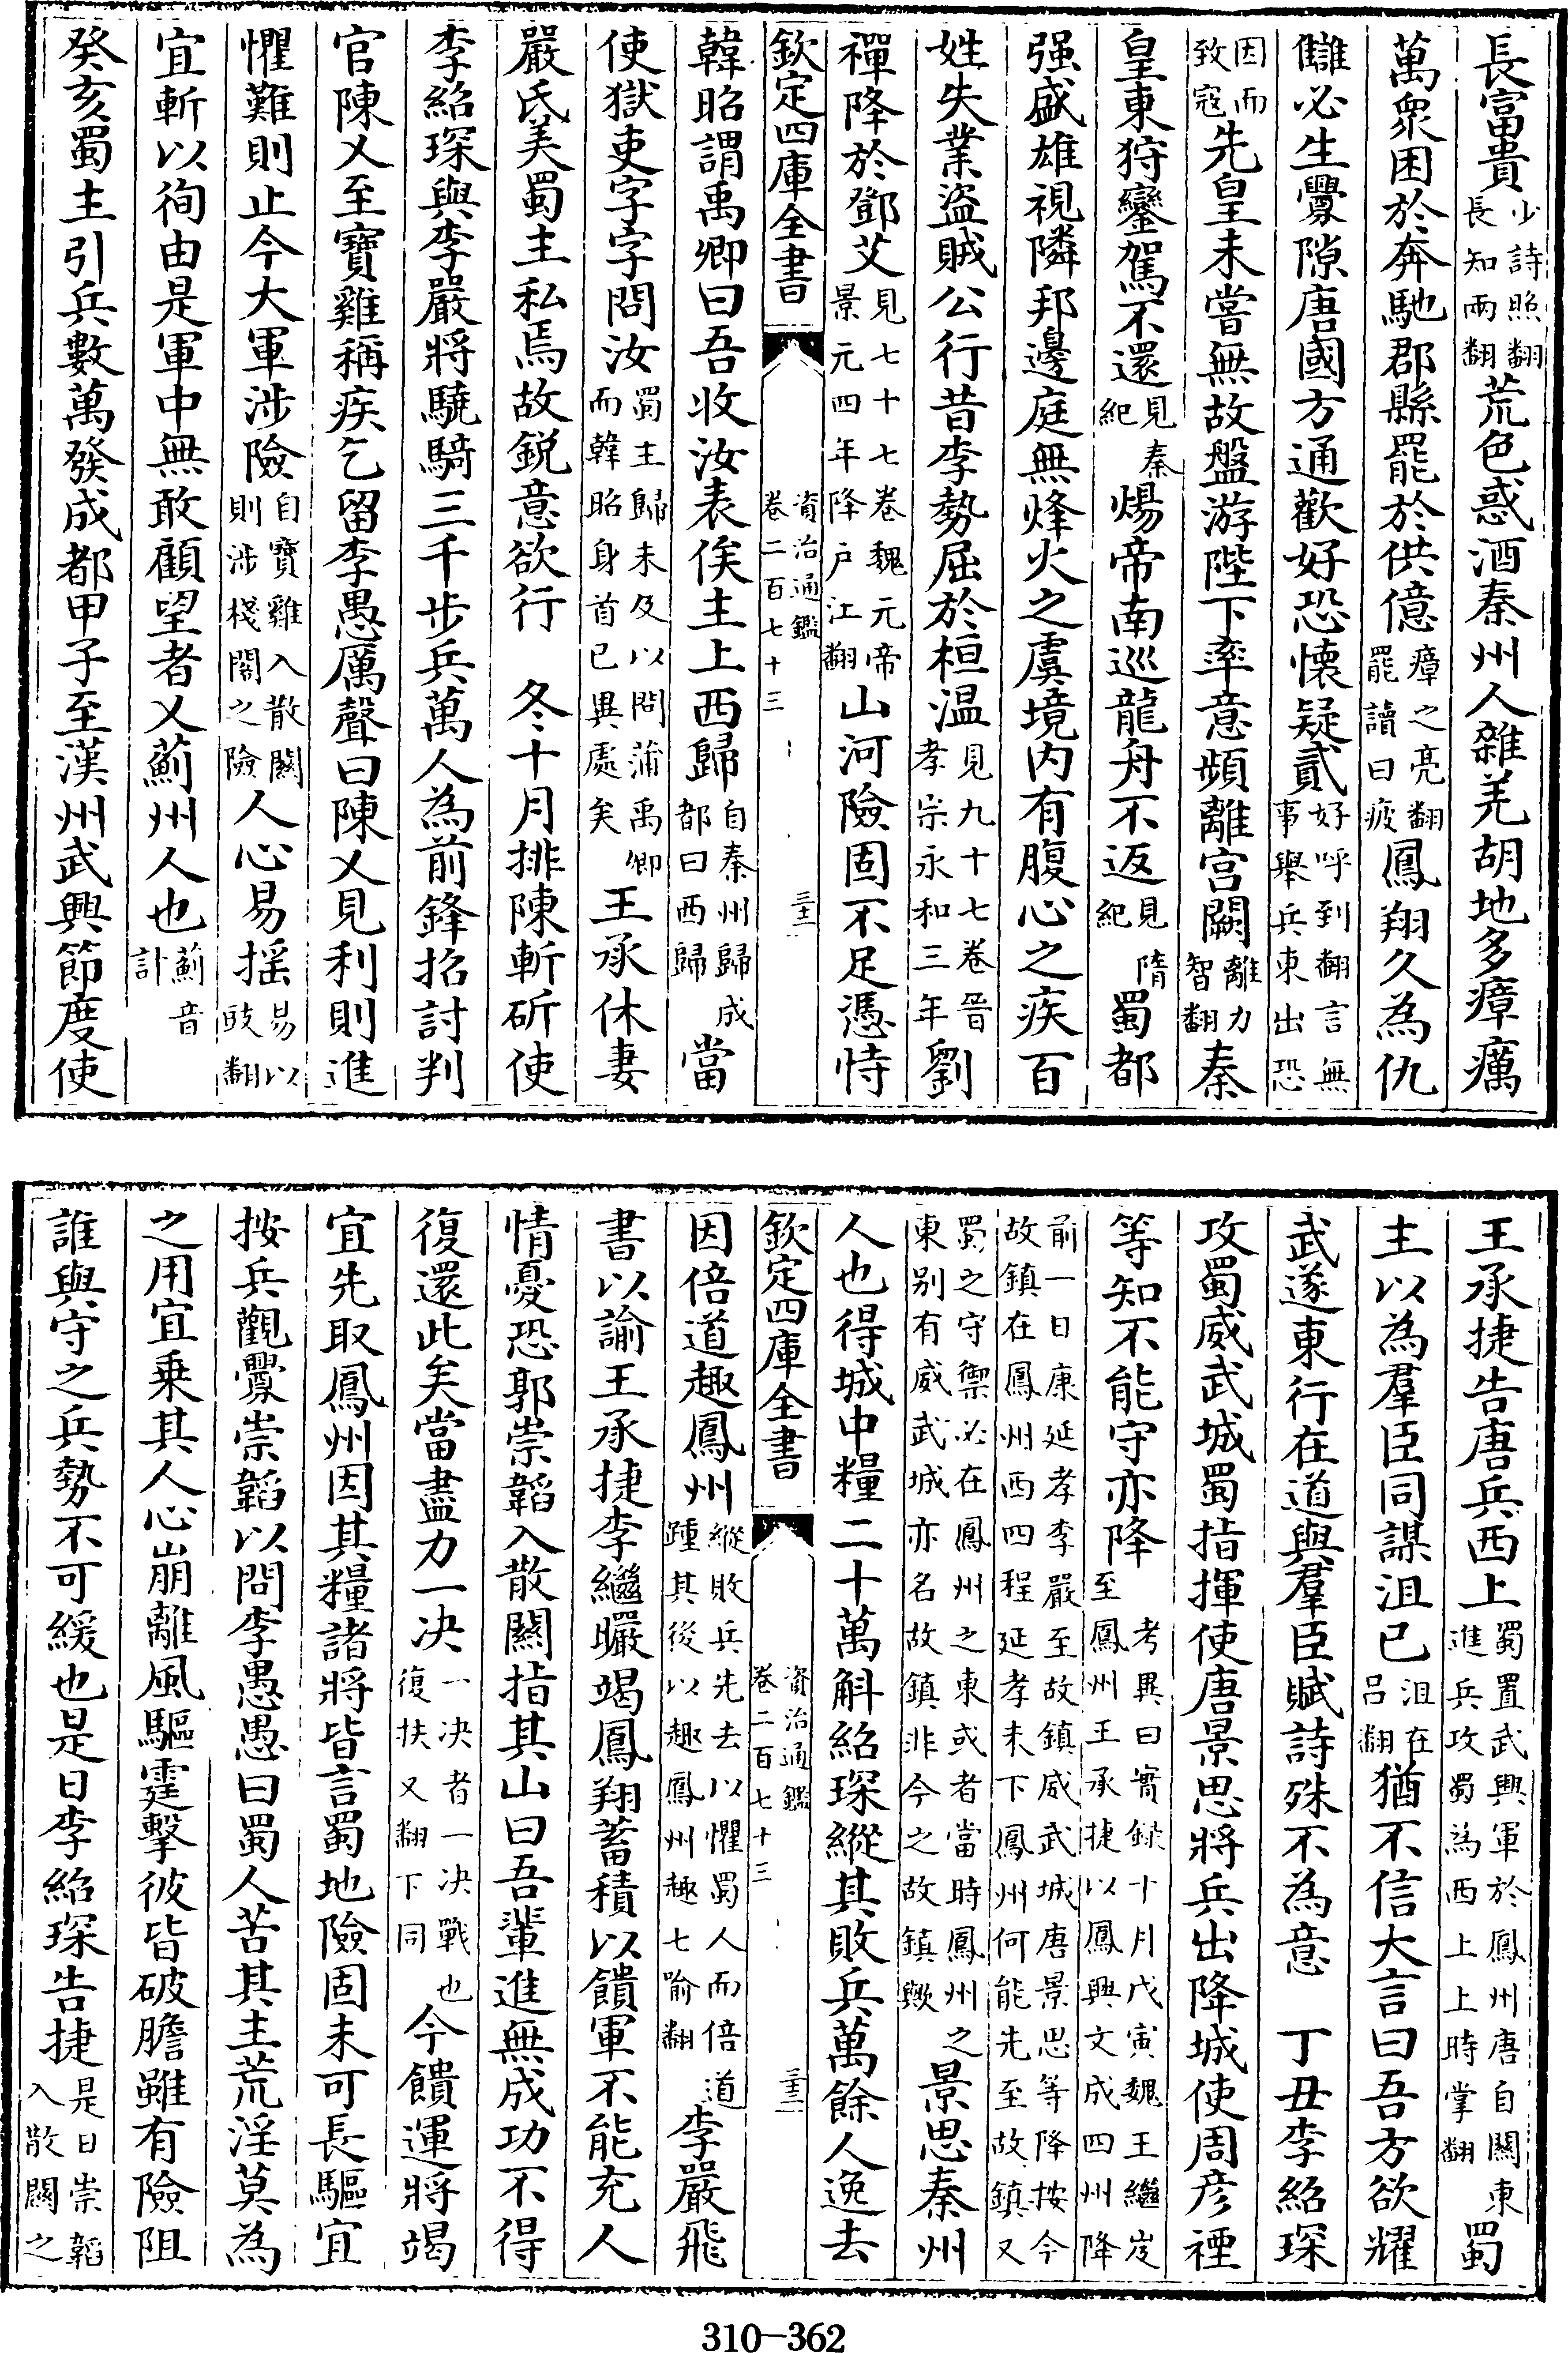 長富貴少詩照翻長知兩翻荒色惑酒秦州人雜羌胡地多瘴癘
萬衆困於奔馳郡縣罷於供億瘴之亮翻罷讀曰疲鳳翔久為仇
讎必生釁隙唐國方通歡好恐懷疑貳好呼到翻言無事舉兵東出恐
因而致寇先皇未嘗無故盤游陛下率意頻離宫闕離力智翻秦
皇東狩鑾駕不還見秦紀煬帝南巡龍舟不返見隋紀蜀都
强盛雄視隣邦邊庭無烽火之虞境内有腹心之疾百
姓失業盗賊公行昔李勢屈於桓温見九十七卷晉孝宗永和三年劉
禪降於鄧艾見七十七卷魏元帝景元四年降户江翻山河險固不足憑恃
欽定四庫全書 資治通鑑卷二百七十三 三十一
韓昭謂禹卿曰吾收汝表俟主上西歸自秦州歸成都曰西歸當
使獄吏字字問汝蜀主歸未及以問蒲禹卿而韓昭身首已異處矣王承休妻
嚴氏美蜀主私焉故鋭意欲行 冬十月排陳斬斫使
李紹琛與李嚴將驍騎三千步兵萬人為前鋒招討判
官陳乂至寶雞稱疾乞留李愚厲聲曰陳乂見利則進
懼難則止今大軍涉險自寶雞入散關則涉棧閣之險人心易揺易以豉翻
宜斬以徇由是軍中無敢顧望者乂薊州人也薊音計
癸亥蜀主引兵數萬發成都甲子至漢州武興節度使
王承捷告唐兵西上蜀置武興軍於鳳州唐自關東進兵攻蜀為西上上時掌翻蜀
主以為羣臣同謀沮已沮在吕翻猶不信大言曰吾方欲耀
武遂東行在道與羣臣賦詩殊不為意 丁丑李紹琛
攻蜀威武城蜀指揮使唐景思將兵出降城使周彦禋
等知不能守亦降考異曰實録十月戊寅魏王繼岌至鳳州王承捷以鳳興文成四州降
前一日康延孝李嚴至故鎮威武城唐景思等降按今故鎮在鳳州西四程延孝未下鳳州何能先至故鎮又
蜀之守禦必在鳳州之東或者當時鳳州之東别有威武城亦名故鎮非今之故鎮歟景思秦州
人也得城中糧二十萬斛紹琛縱其敗兵萬餘人逸去
欽定四庫全書 資治通鑑卷二百七十三 三十二
因倍道趣鳳州縱敗兵先去以懼蜀人而倍道踵其後以趣鳳州趣七喻翻李嚴飛
書以諭王承捷李繼曮竭鳳翔蓄積以饋軍不能充人
情憂恐郭崇韜入散關指其山曰吾輩進無成功不得
復還此矣當盡力一决一决者一决戰也復扶又翻下同今饋運將竭
宜先取鳳州因其糧諸將皆言蜀地險固未可長驅宜
按兵觀釁崇韜以問李愚愚曰蜀人苦其主荒淫莫為
之用宜乘其人心崩離風驅霆擊彼皆破膽雖有險阻
誰與守之兵勢不可緩也是日李紹琛告捷是日崇韜入散關之
310—362